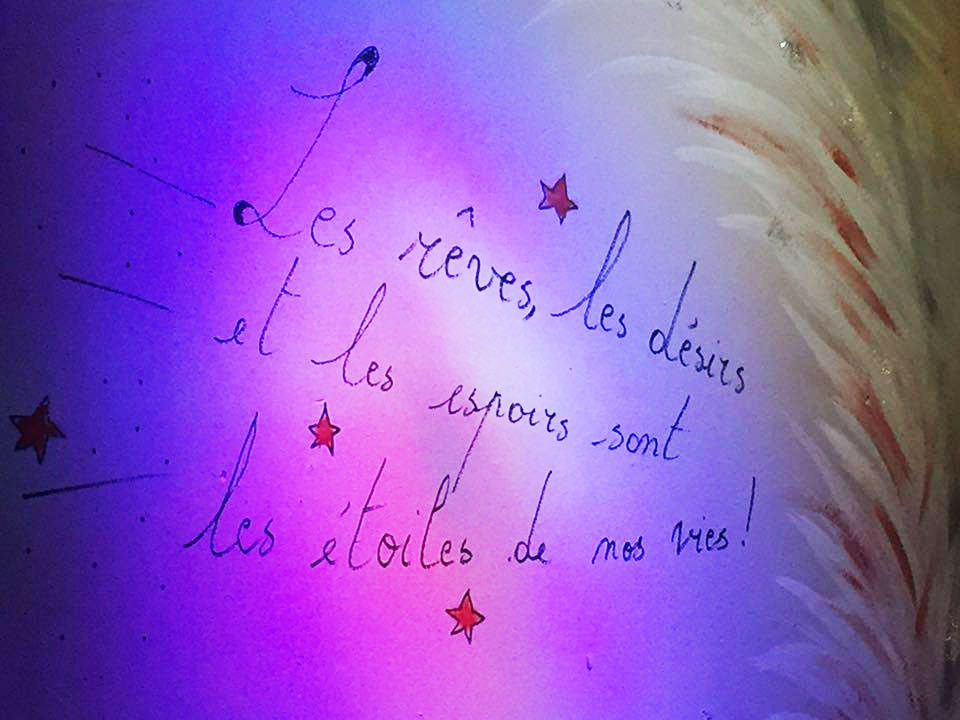 Les rêves, les désirs
et les espoirs sont
les étoiles de nos vies!